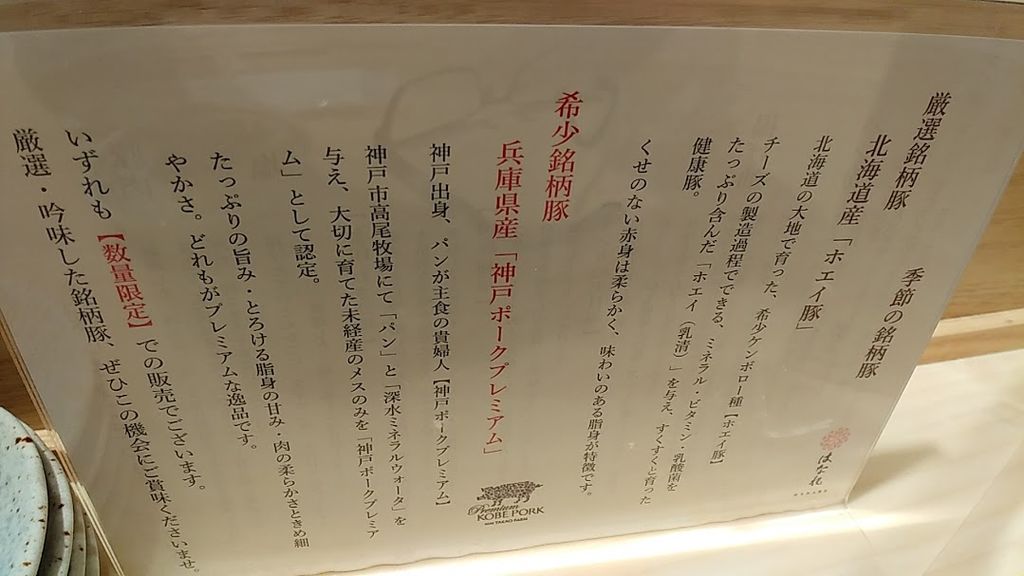 厳選銘柄豚　季節の銘柄豚
北海道産「ホエイ豚」
北海道の大地で育った、希少ケンボロー種【ホエイ豚】
チーズの製造過程でできる、ミネラル・ビタミン・乳酸菌を
たっぷり含んだ「ホエイ（乳清）」を与え、すくすくと育った
健康豚。
くせのない赤身は柔らかく、味わいのある脂身が特徴です。
希少銘柄豚
兵庫県産「神戸ポークプレミアム」
神戸出身、パンが主食の貴婦人【神戸ポークプレミアム】
神戸市高尾牧場にて「パン」と「深水ミネラルウォータ」を
与え、大切に育てた未経産のメスのみを「神戸ポークプレミア
ム」として認定。
たっぷりの旨み・とろける脂身の甘み・肉の柔らかさときめ細
やかさ。どれもがプレミアムな逸品です。
いずれも【数量限定】での販売でございます。
厳選・吟味した銘柄豚、ぜひこの機会にご賞味くださいませ。
Premium
KOBE PORK
from TAKAO FARM